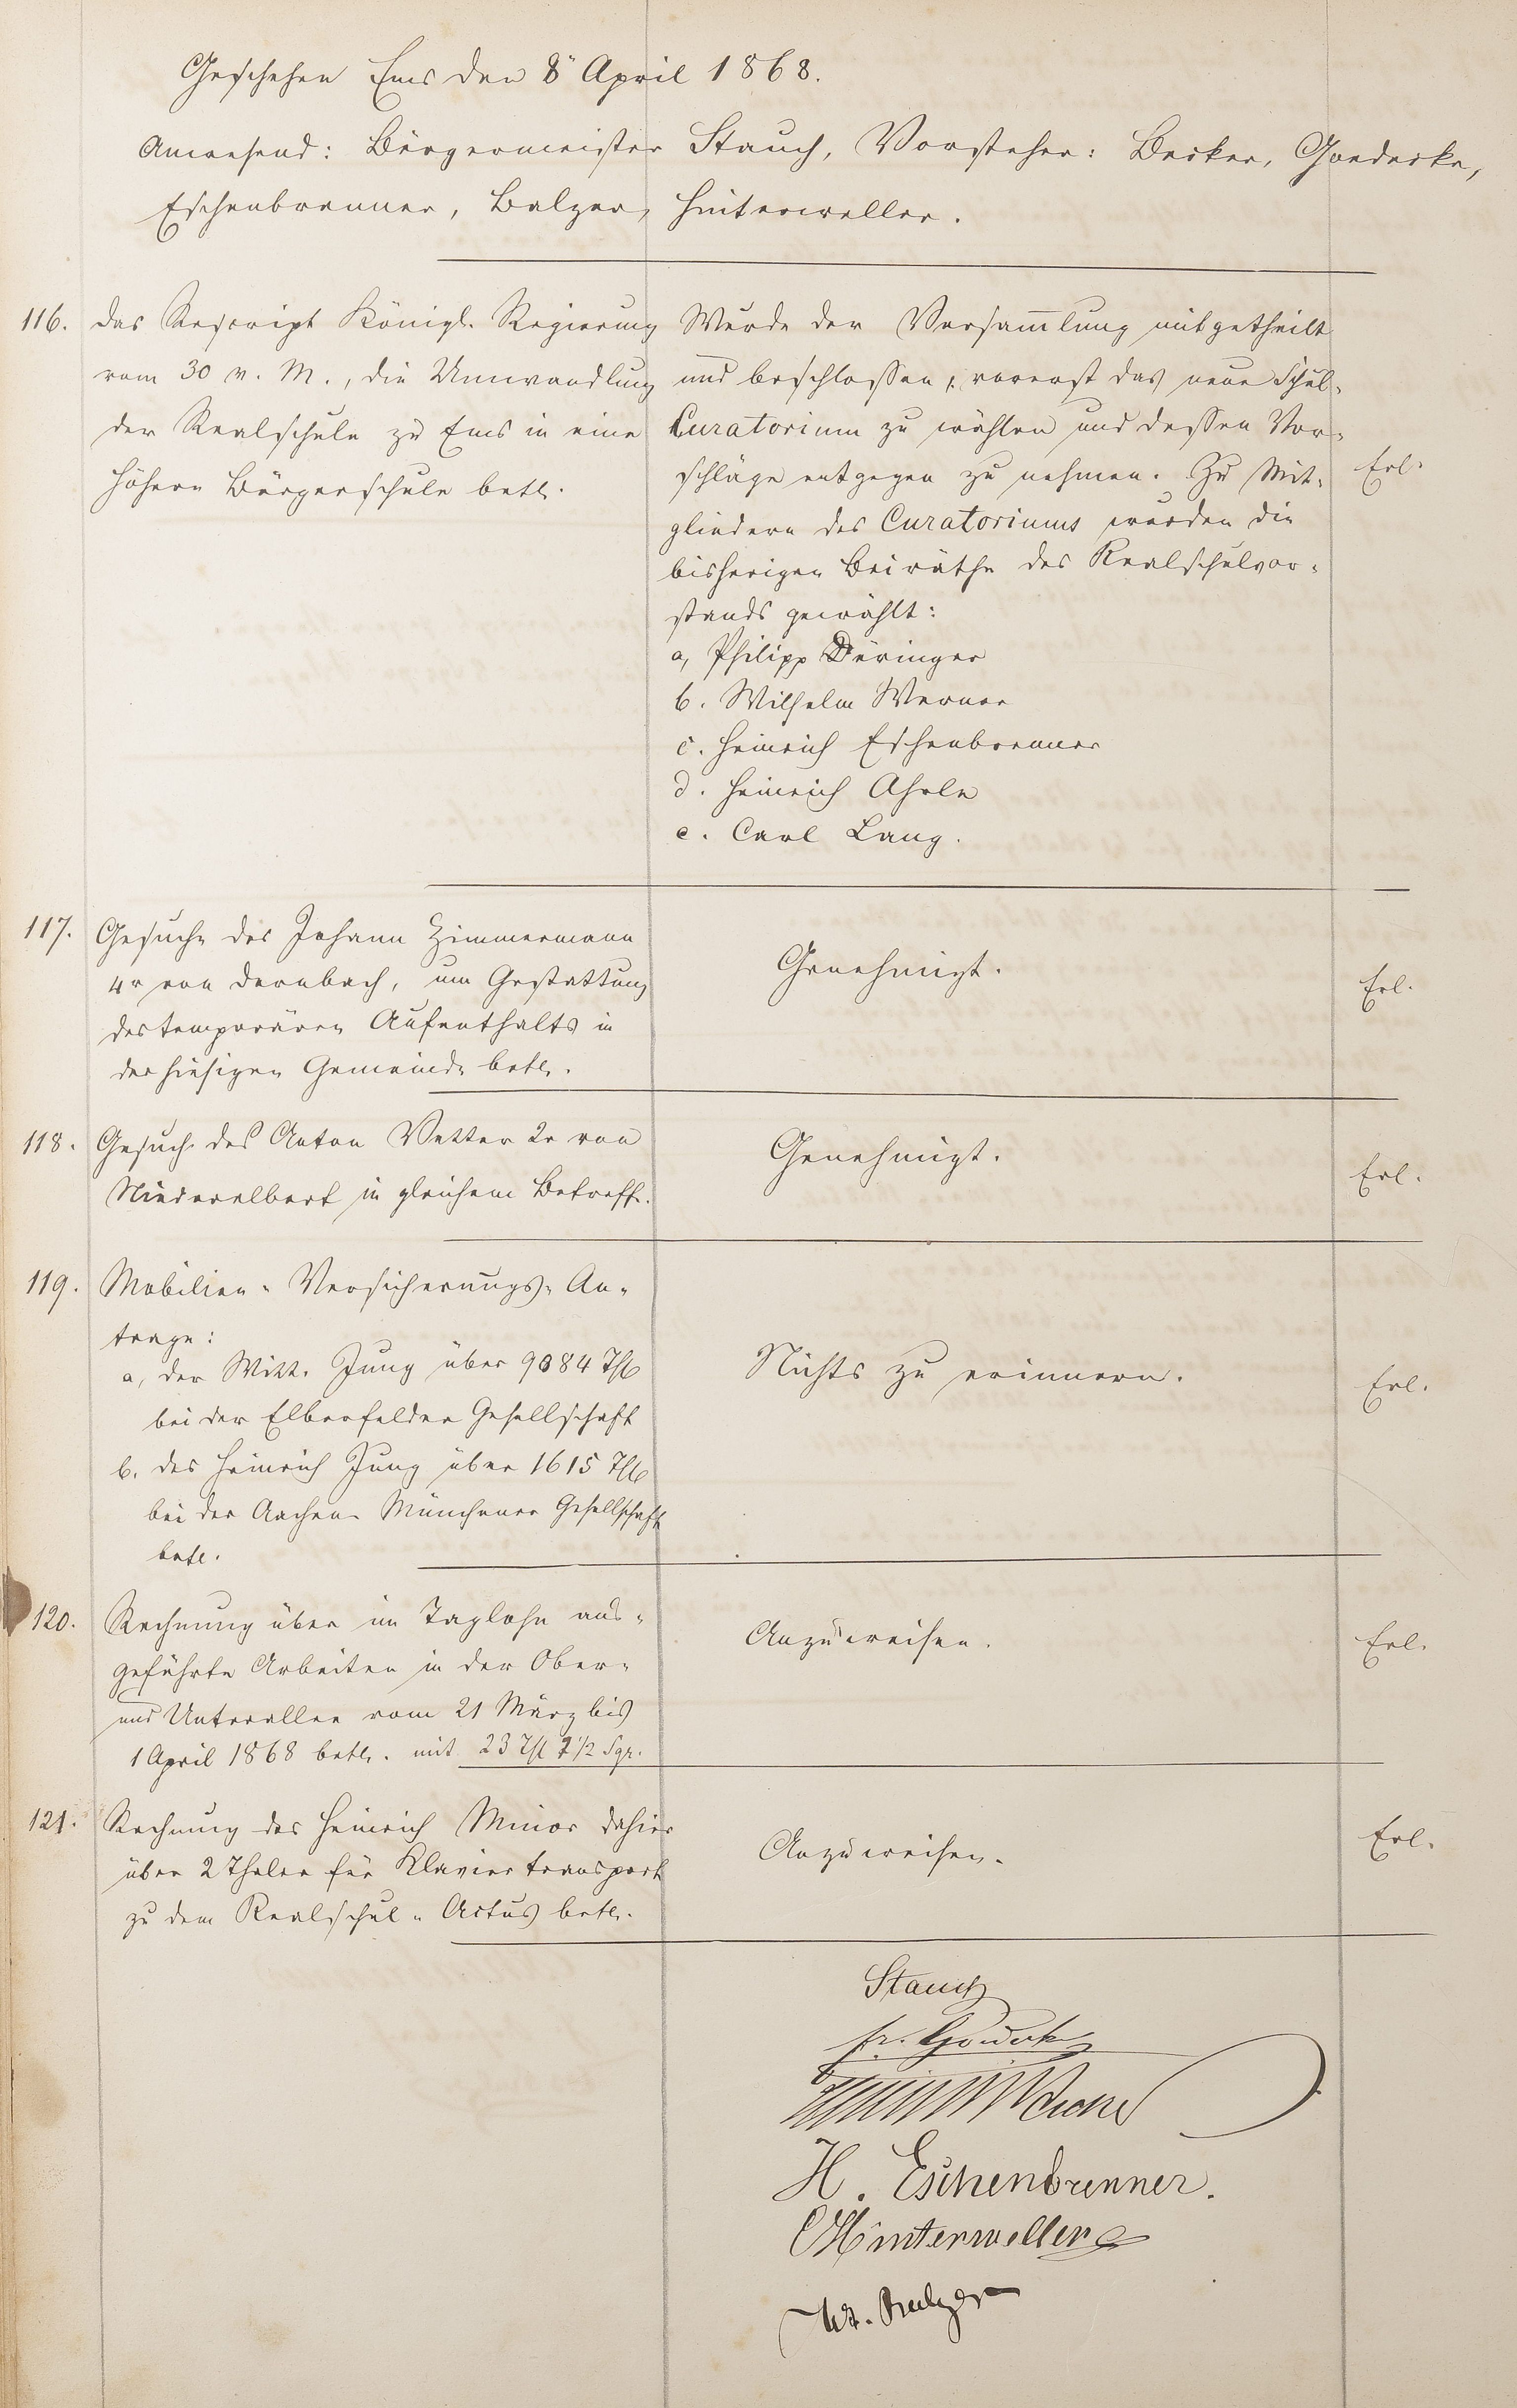 Geschehen Ems den 8ⁿ April 1868.
Anwesend: Bürgermeister Stauch, Vorsteher: Becker, Goedecke,
Eschenbrenner, Balzer, Hinterweller.
116.
das Rescript Königl. Regierung
vom 30 v. M., die Umwandlung
der Realschule zu Ems in eine
höhere Bürgerschule betr.
Wurde der Versam̄lung mitgetheilt
und beschlossen, vorerst das neue Schul-
Curatorium zu wählen und dessen Vor-
schläge entgegen zu nehmen. Zu Mit-
gliedern des Curatoriums wurden die
bisherigen Beiräthe des Realschulvor-
stands gewählt:
a, Philipp Düringer
b. Wilhelm Werner
c. Heinrich Eschenbrenner
d. Heinrich Ahrle
e. Carl Lang.
Erl.
117.
Gesuch des Johann Zimmermann
4r von Dernbach, um Gestattung
des temporären Aufenthalts in
der hiesigen Gemeinde betr.
Genehmigt.
Erl.
118.
Gesuch des Anton Vetter 2r von
Niederelbert in gleichem Betreff.
Genehmigt.
Erl.
119.
Mobilien-Versicherungs-An-
trage:
a, der Witt. Jung über 9084 Thl
bei der Elberfelder Gesellschaft
b. des Heinrich Jung über 1615 Thl
bei der Aachen-Münchener Gesellschaft
betr.
Nichts zu erinnern.
Erl.
120.
Rechnung über im Taglohn aus-
geführte Arbeiten in der Ober-
und Unterallee vom 21 März bis
1 April 1868 betr. mit 23 Thl 7 1/2 Sgr.
Anzuweisen.
Erl.
121.
Rechnung des Heinrich Minor dahier
über 2 Thaler für Klaviertransport
zu dem Realschul-Actus betr.
Anzuweisen.
Erl.
Stauch
fr. Goedecke
H. Eschenbrenner.
Hinterweller
W. Balzer